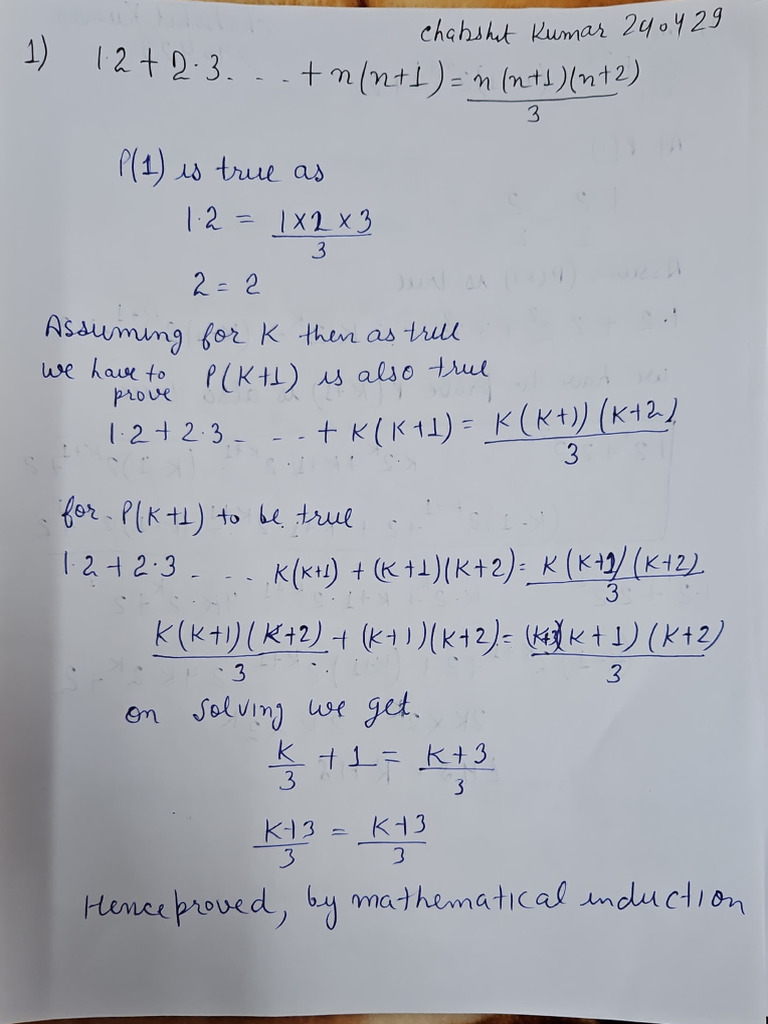 chabshit Kumar 240429
1) 1·2 + 2·3. . . . + n(n+1) = n(n+1)(n+2)/3
P(1) is true as
1·2 = 1×2×3/3
2 = 2
Assuming for K then as true
we have to prove P(K+1) is also true
1·2 + 2·3 - - .. + K(K+1) = K(K+1)(K+2)/3
for P(K+1) to be true
1·2 + 2·3 - . .. K(K+1) + (K+1)(K+2) = K(K+1)(K+2)/3
K(K+1)(K+2)/3 + (K+1)(K+2) = (K+3)(K+1)(K+2)/3
on solving we get.
K/3 + 1 = K+3/3
K+3/3 = K+3/3
Hence proved, by mathematical induction